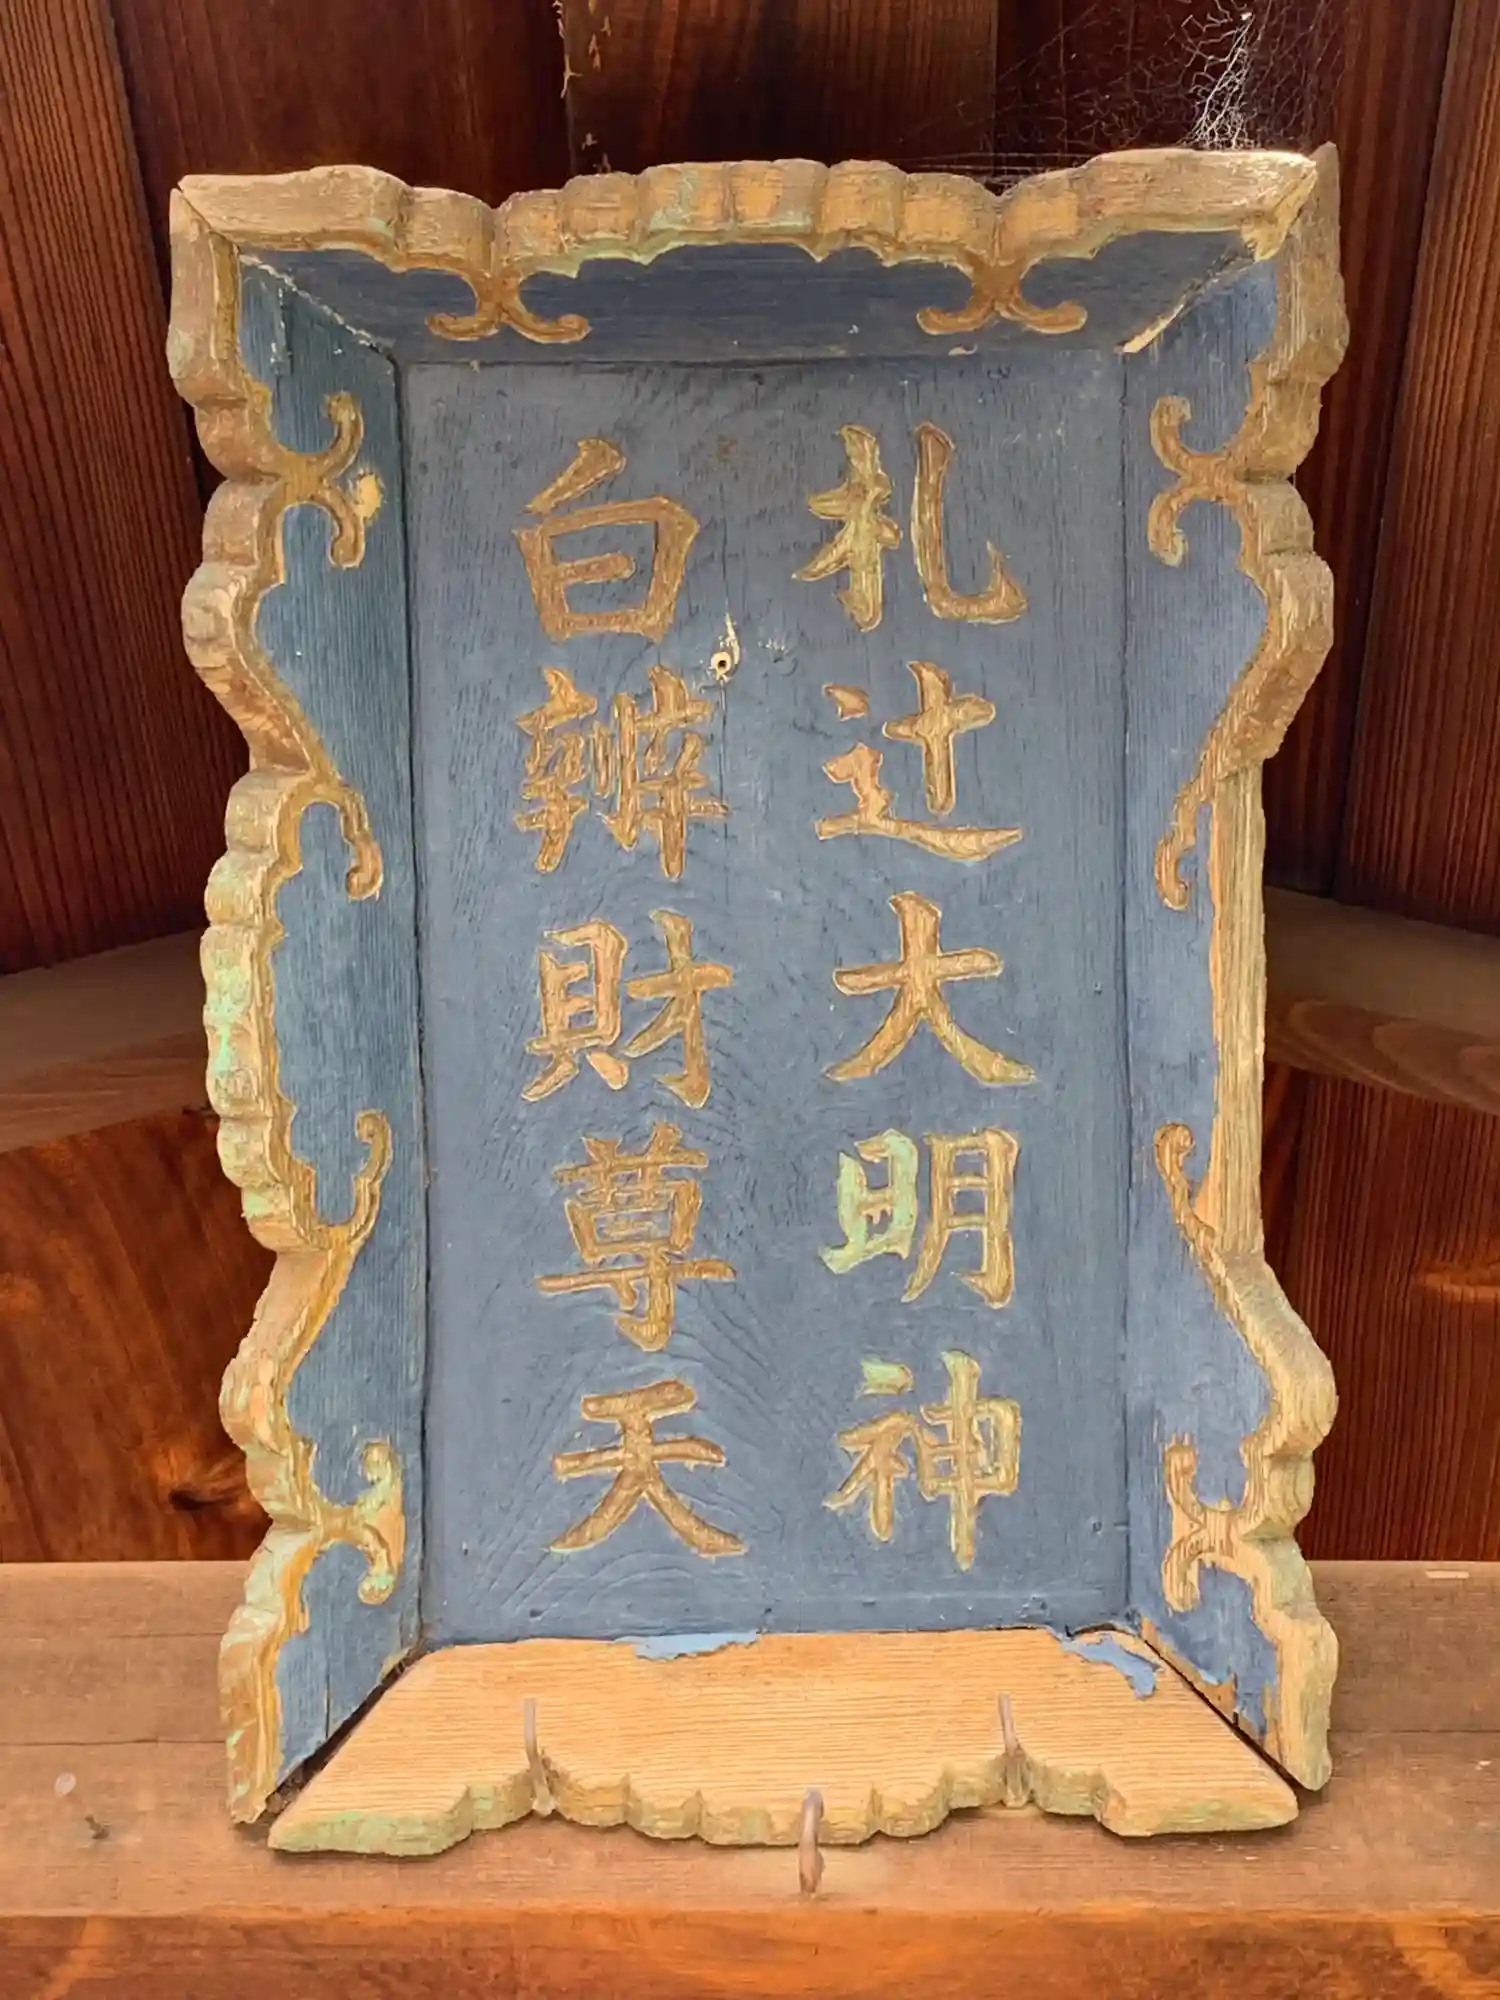 札辻大明神
白辨財尊天